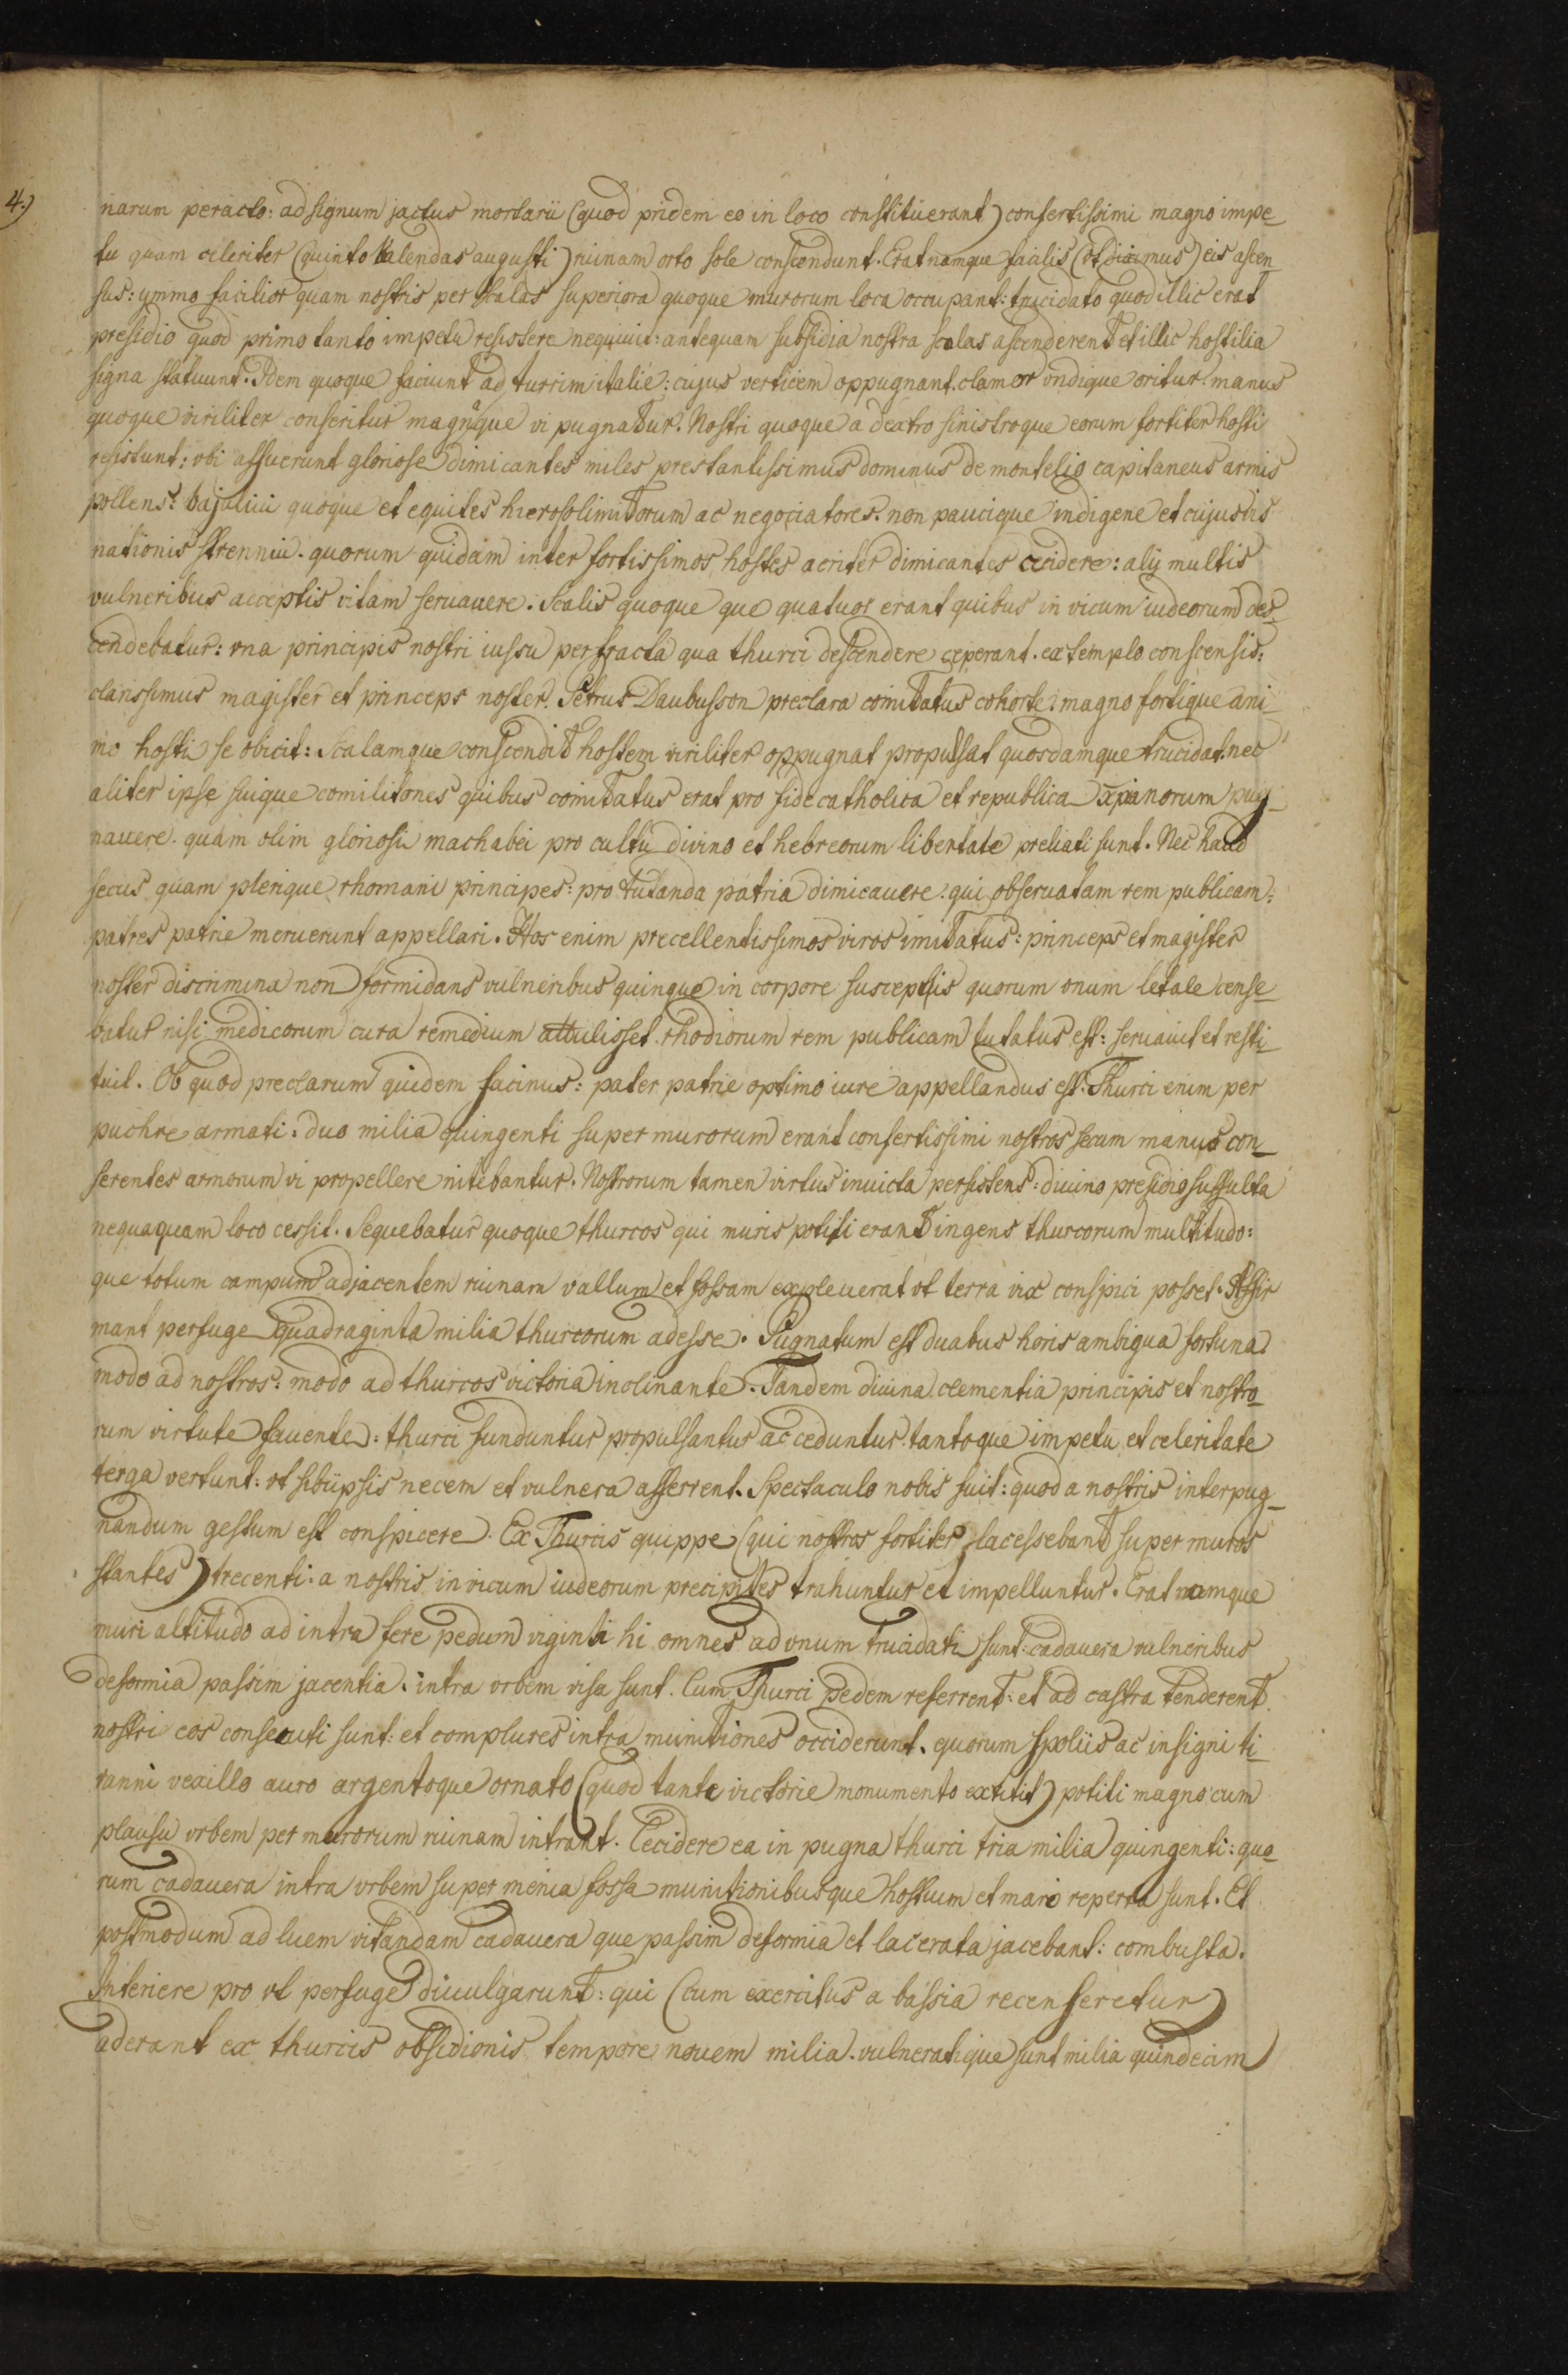 4.)
narum peracto: ad signum jactus mortarii (quod pridem eo in loco constituerant) confertissimi magno impe-
tu quam celeriter (quinto Kalendas augusti) ruinam orto sole conscendunt. Erat namque facilis (ut diximus) eis ascen
sus: ymmo facilior quam nostris per scalas superiora quoque murorum loca occupant: trucidato quod illic erat
presidio quod primo tanto impetu resistere nequiuit: antequam subsidia nostra scalas ascenderent et illic hostilia
signa statuunt. Idem quoque faciunt ad turrim italie: cujus verticem oppugnant. clamor vndique oritur. manus
quoque viriliter conseritur magnaque vi pugnatur. Nostri quoque a dextro sinistroque eorum fortiter hosti
resistunt: vbi affuerunt gloriose dimicantes miles prestantissimus dominus de montelio capitaneus armis
pollens: bajuliui quoque et equites hierosolimitorum ac negociatores. non paucique indigene et cujusvis
nationis strennui. quorum quidam inter fortissimos hostes acriter dimicantes cecidere: alij multis
vulneribus acceptis vitam seruauere. Scalis quoque que quatuor erant quibus in vicum iudeorum des-
cendebatur: vna principis nostri iussu perfracta qua thurci descendere ceperant. extemplo conscensis:
clarissimus magister et princeps noster. Petrus Daubusson preclara comitatus cohorte: magno fortique ani-
mo hosti se obicit: Scalamque conscendit hostem viriliter oppugnat propulsat quosdamque trucidat. nec
aliter ipse suique comilitones quibus comitatus erat pro fide catholica et republica xpianorum pug-
nauere. quam olim gloriosi machabei pro cultu divino et hebreorum libertate preliati sunt. Nec haud
secus quam plerique rhomani principes: pro tutanda patria dimicauere: qui obseruatam rem publicam:
patres patrie meruerunt appellari. Hos enim precellentissimos viros imitatus: princeps et magister
noster discrimina non formidans vulneribus quinque in corpore susceptis quorum vnum letale cense-
batur nisi medicorum cura remedium attulisset rhodiorum rem publicam tutatus est: seruauit et resti-
tuit. Ob quod preclarum quidem facinus: pater patrie optimo iure appellandus est. Thurci enim per
puchre armati: duo milia quingenti super murorum erant confertissimi nostros secum manus con-
serentes armorum vi propellere nitebantur. Nostrorum tamen virtus inuicta persistens: diuino presidio suffulta
nequaquam loco cessit. Sequebatur quoque thurcos qui muris potiti erant ingens thurcorum multitudo:
que totum campum adjacentem ruinam vallum et fossam expleuerat vt terra vix conspici posset. Affir
mant perfuge quadraginta milia thurcorum adesse. Pugnatum est duabus horis ambigua fortuna
modo ad nostros: modo ad thurcos victoria inclinante. Tandem diuina clementia principis et nostro-
rum virtute fauente: thurci funduntur propulsantur ac ceduntur. tantoque impetu et celeritate
terga vertunt: vt sibiipsis necem et vulnera afferrent. Spectaculo nobis fuit: quod a nostris interpug-
nandum gestum est conspicere. Ex Thurcis quippe (qui nostros fortiter lacessebant super muros
stantes) trecenti: a nostris in vicum iudeorum precipites trahuntur et impelluntur. Erat namque
muri altitudo ad intra fere pedum viginti hi omnes ad vnum trucidati sunt: cadauera vulneribus
deformia passim jacentia: intra vrbem visa sunt. Cum Thurci pedem referrent: et ad castra tenderent
nostri eos consecuti sunt: et complures intra munitiones occiderunt. quorum spoliis ac insigni ti-
ranni vexillo auro argentoque ornato (quod tante victorie monumento extitit) potiti magno cum
plausu vrbem per murorum ruinam intrant. Cecidere ea in pugna thurci tria milia quingenti: quo-
rum cadauera intra vrbem super menia fossa munitionibusque hostium et mari reperta sunt. Et
postmodum ad luem vitandam cadauera que passim deformia et lacerata jacebant: combusta.
Interiere pro vt perfuge diuulgarunt: qui (cum exercitus a bassia recenseretur)
aderant ex thurcis obsidionis tempore nouem milia. vulneratique sunt milia quindecim